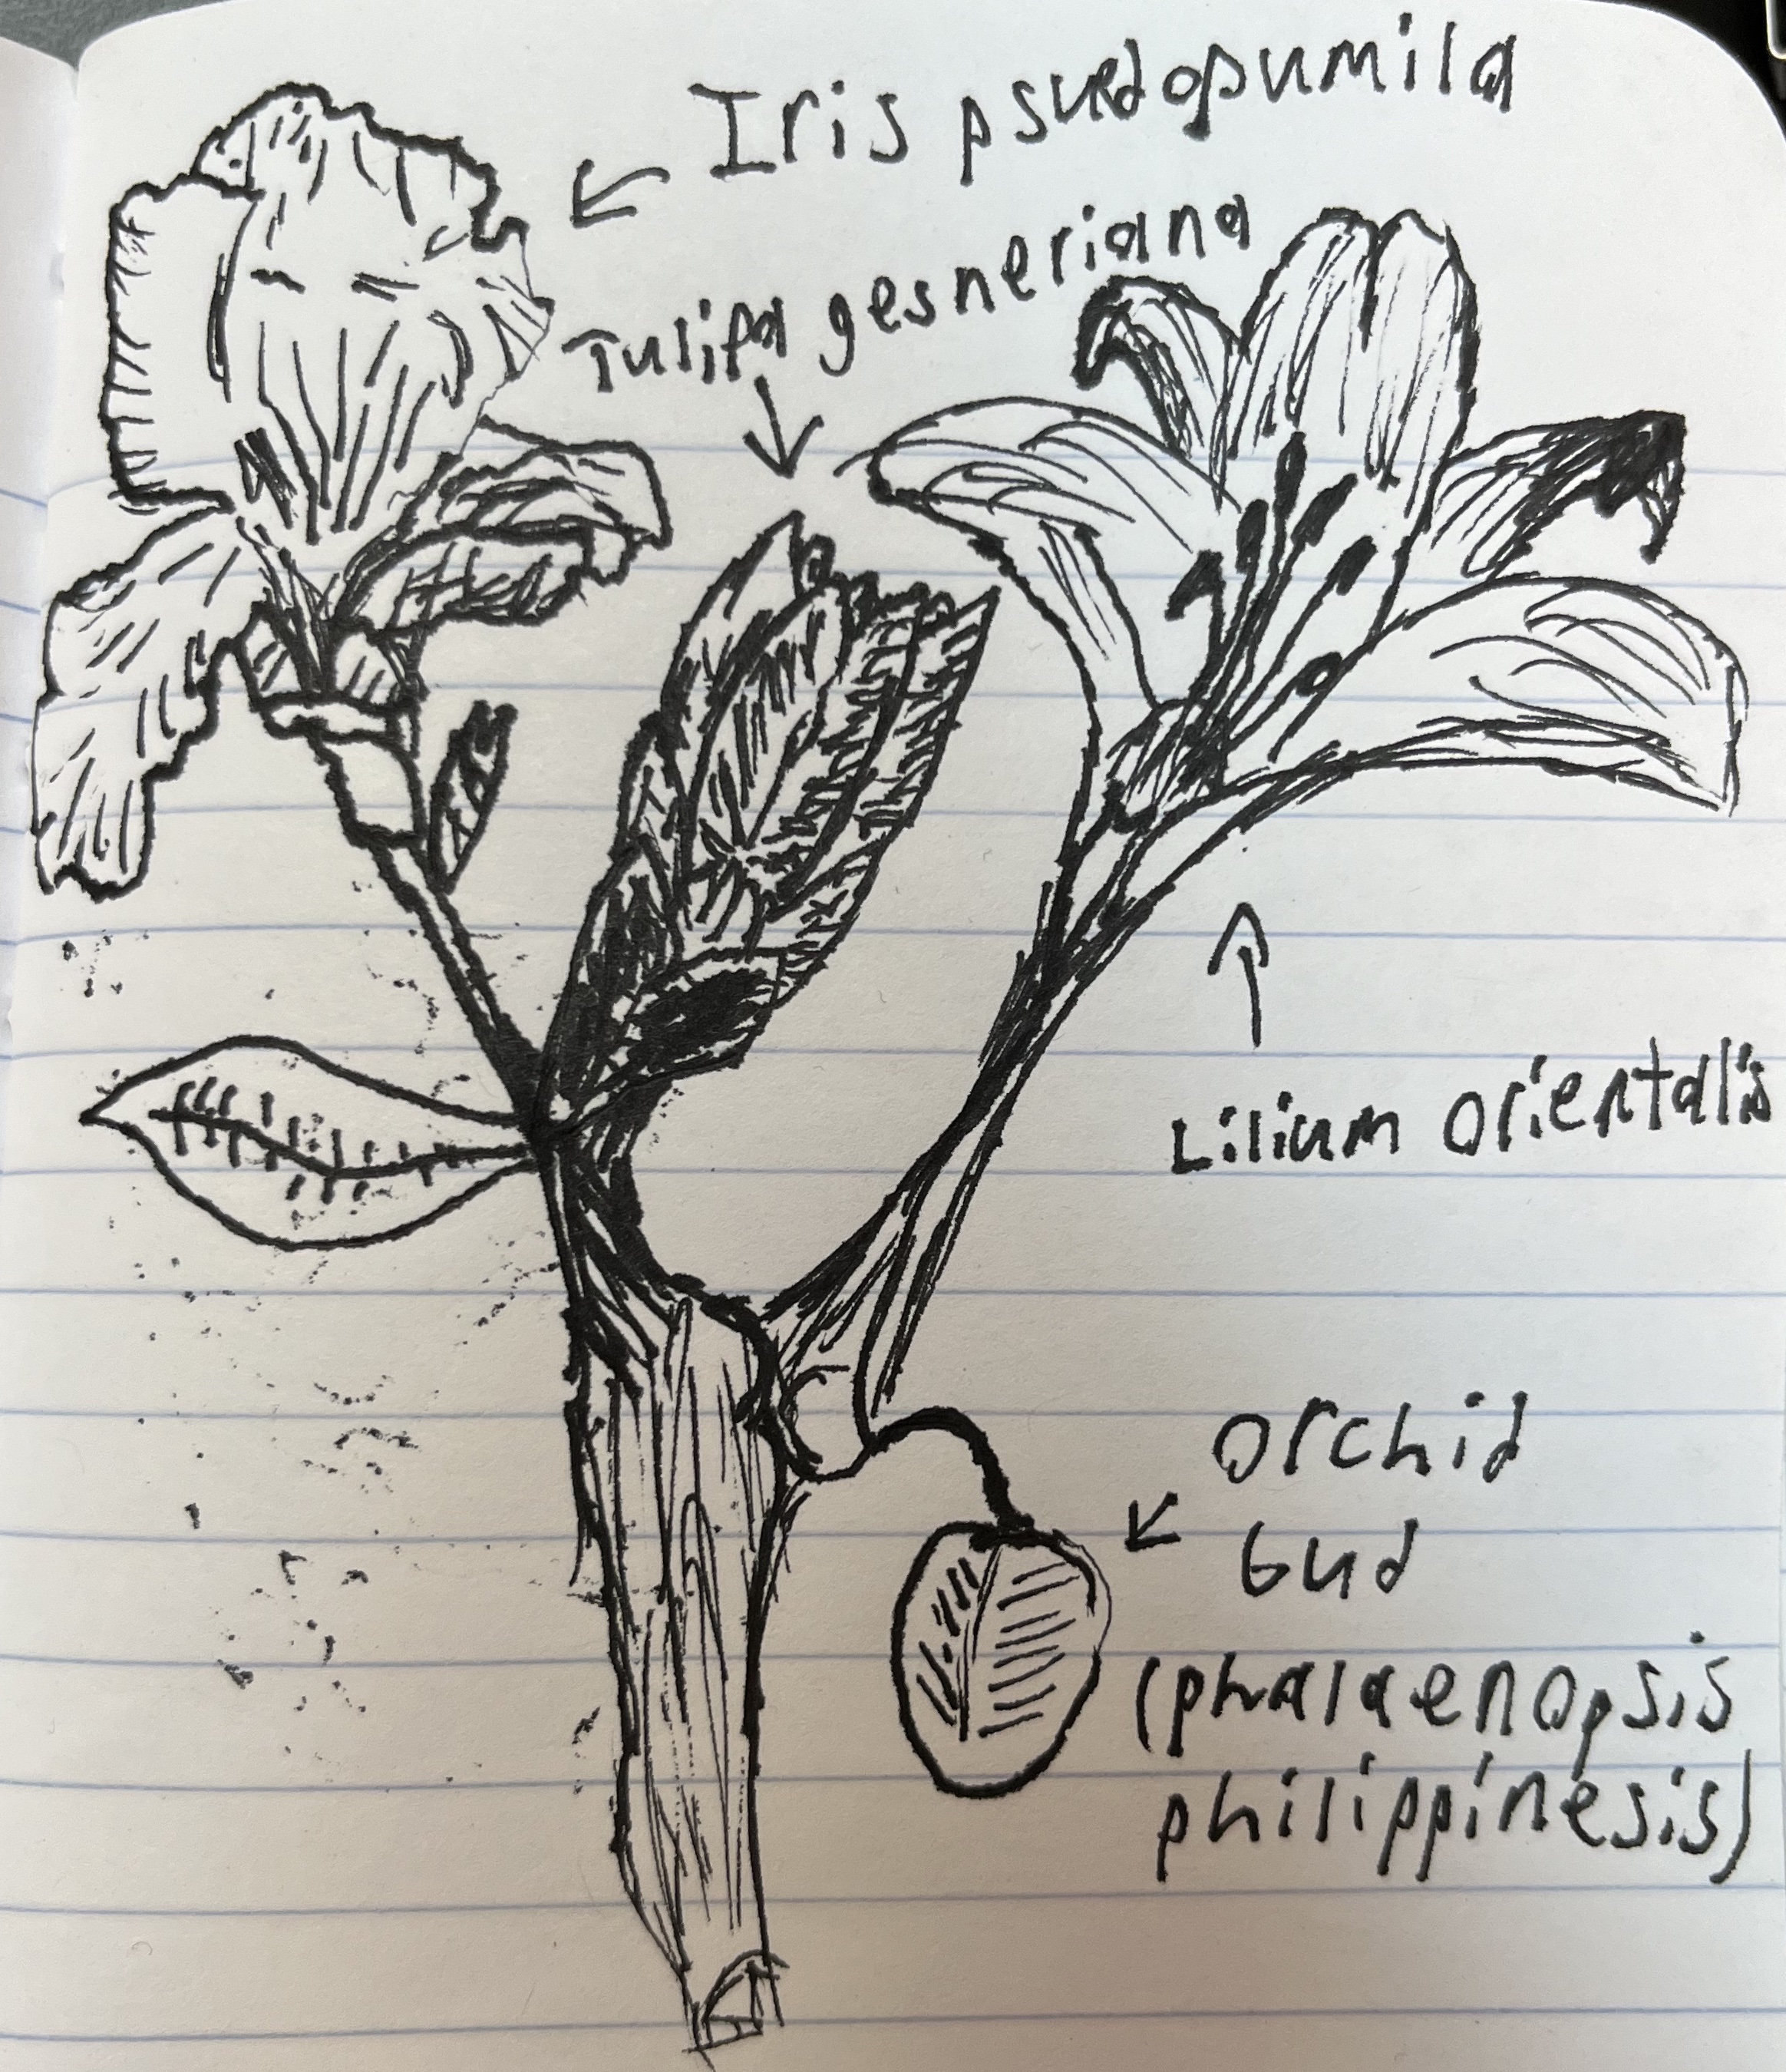 Iris psuedopumila
Tulipa gesneriana
Lilium orientalis
orchid
bud
(phalaenopsis
philippinesis)